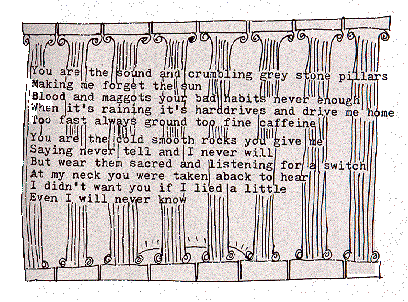 You are the sound and crumbling grey stone pillars
Making me forget the sun
Blood and maggots your bad habits never enough
When it's raining it's harddrives and drive me home
Too fast always ground too fine caffeine
You are the cold smooth rocks you give me
Saying never tell and I never will
But wear them sacred and listening for a switch
At my neck you were taken aback to hear
I didn't want you if I lied a little
Even I will never know